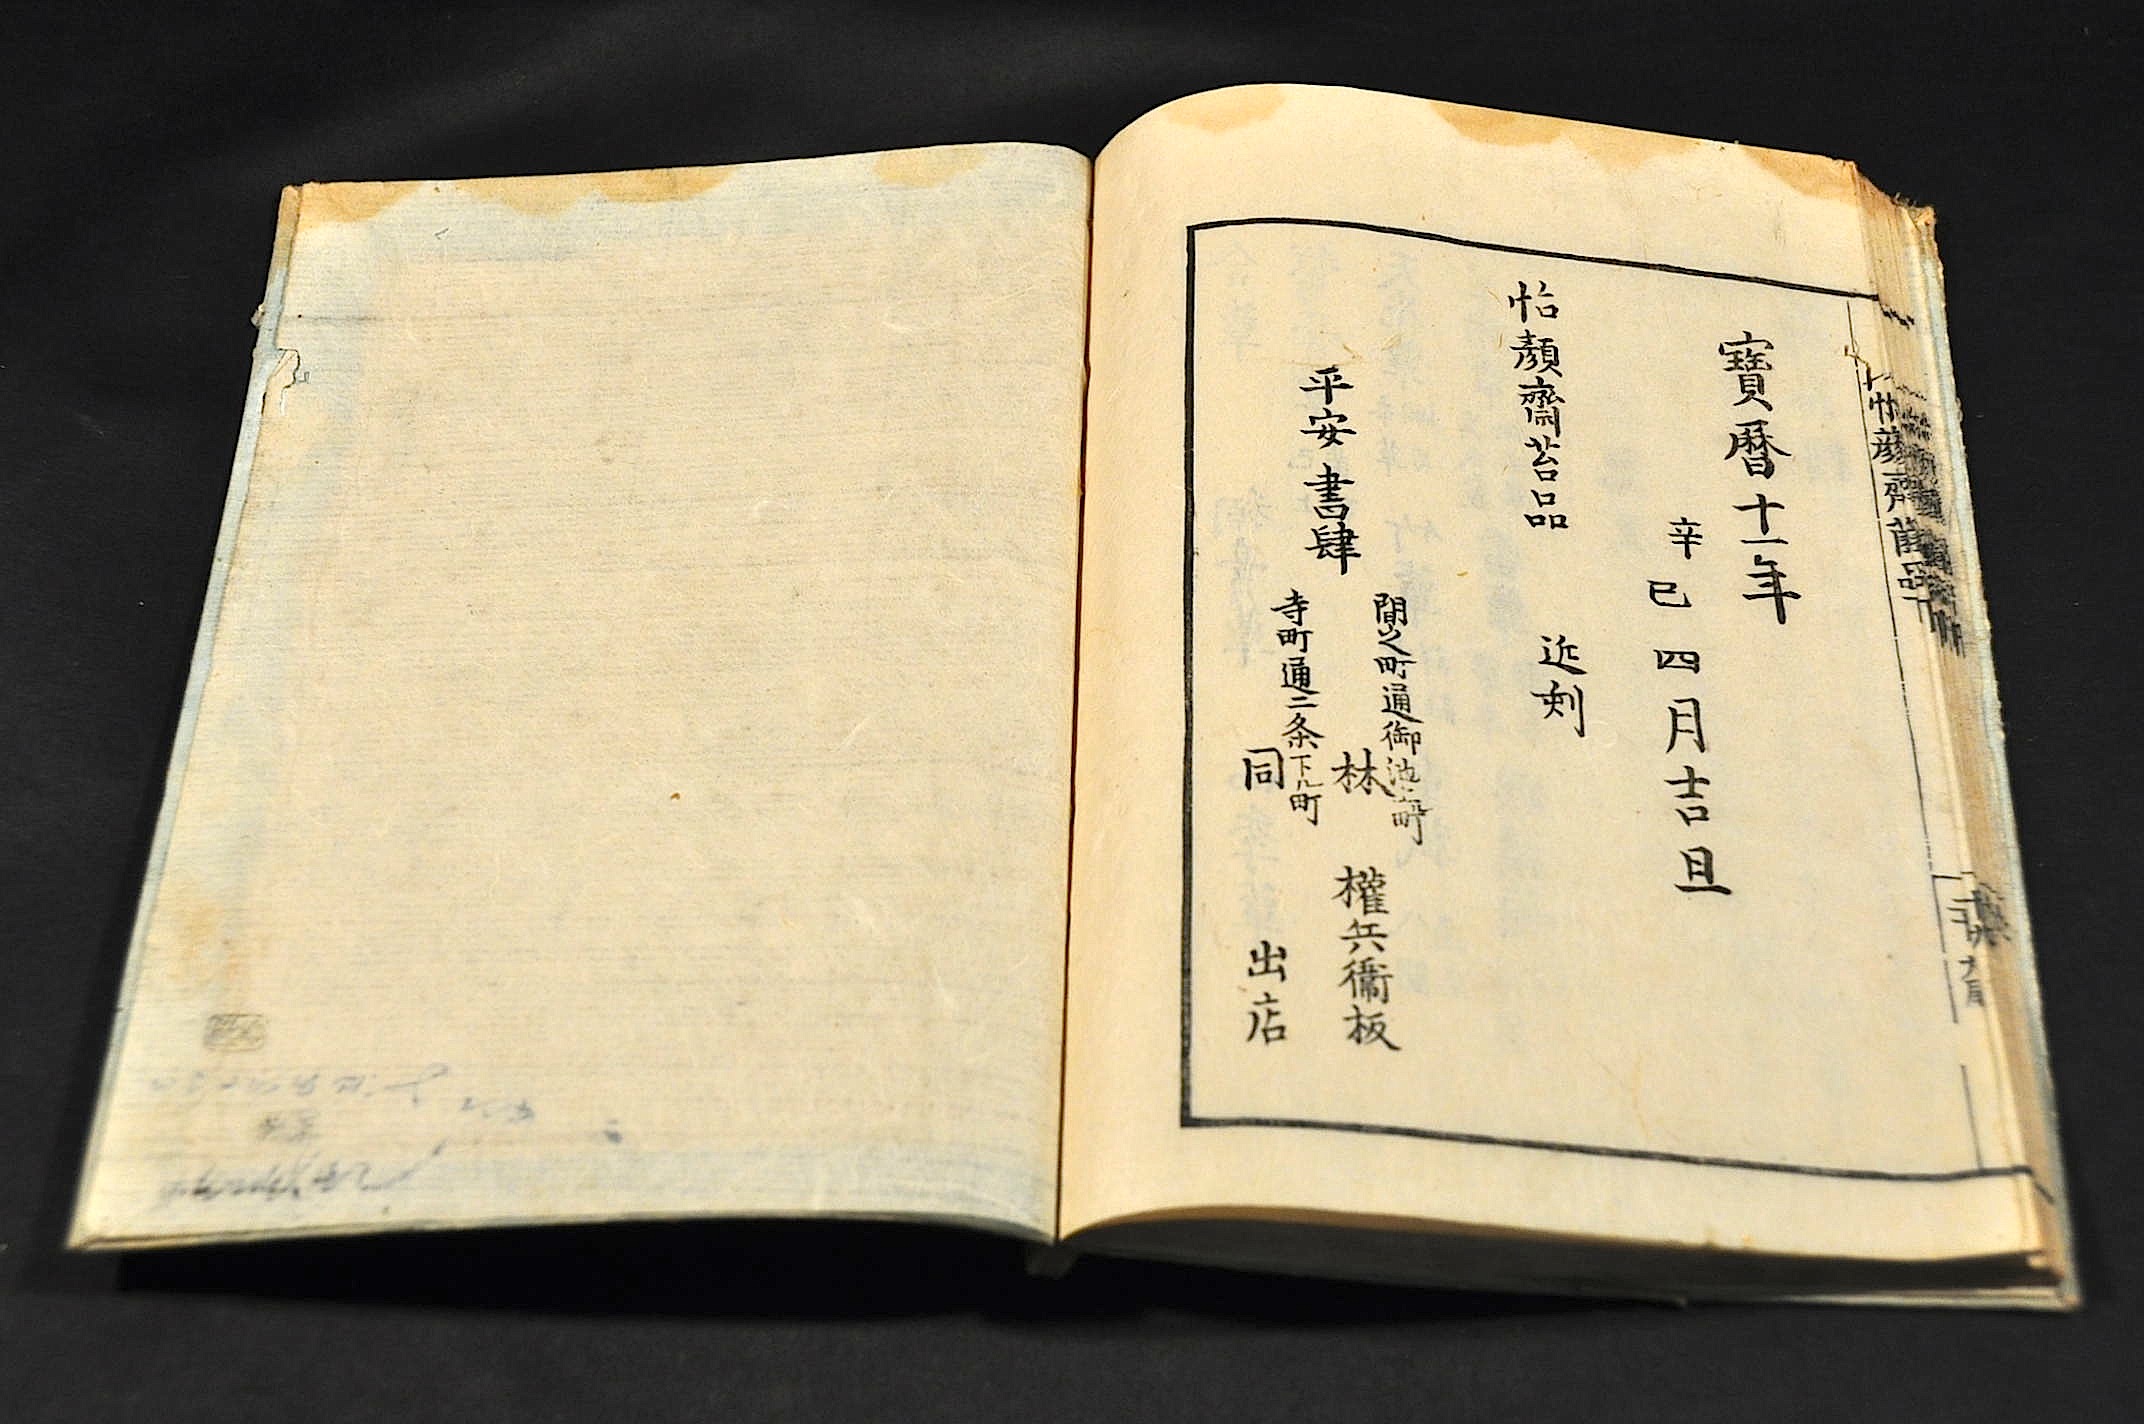 怡顔齋菌品
寶暦十一年
辛巳四月吉旦
怡顏齋苔品 近刻
平安書肆
間之町通御池上ル町
林 權兵衞板
寺町通二条下ル町
同 出店